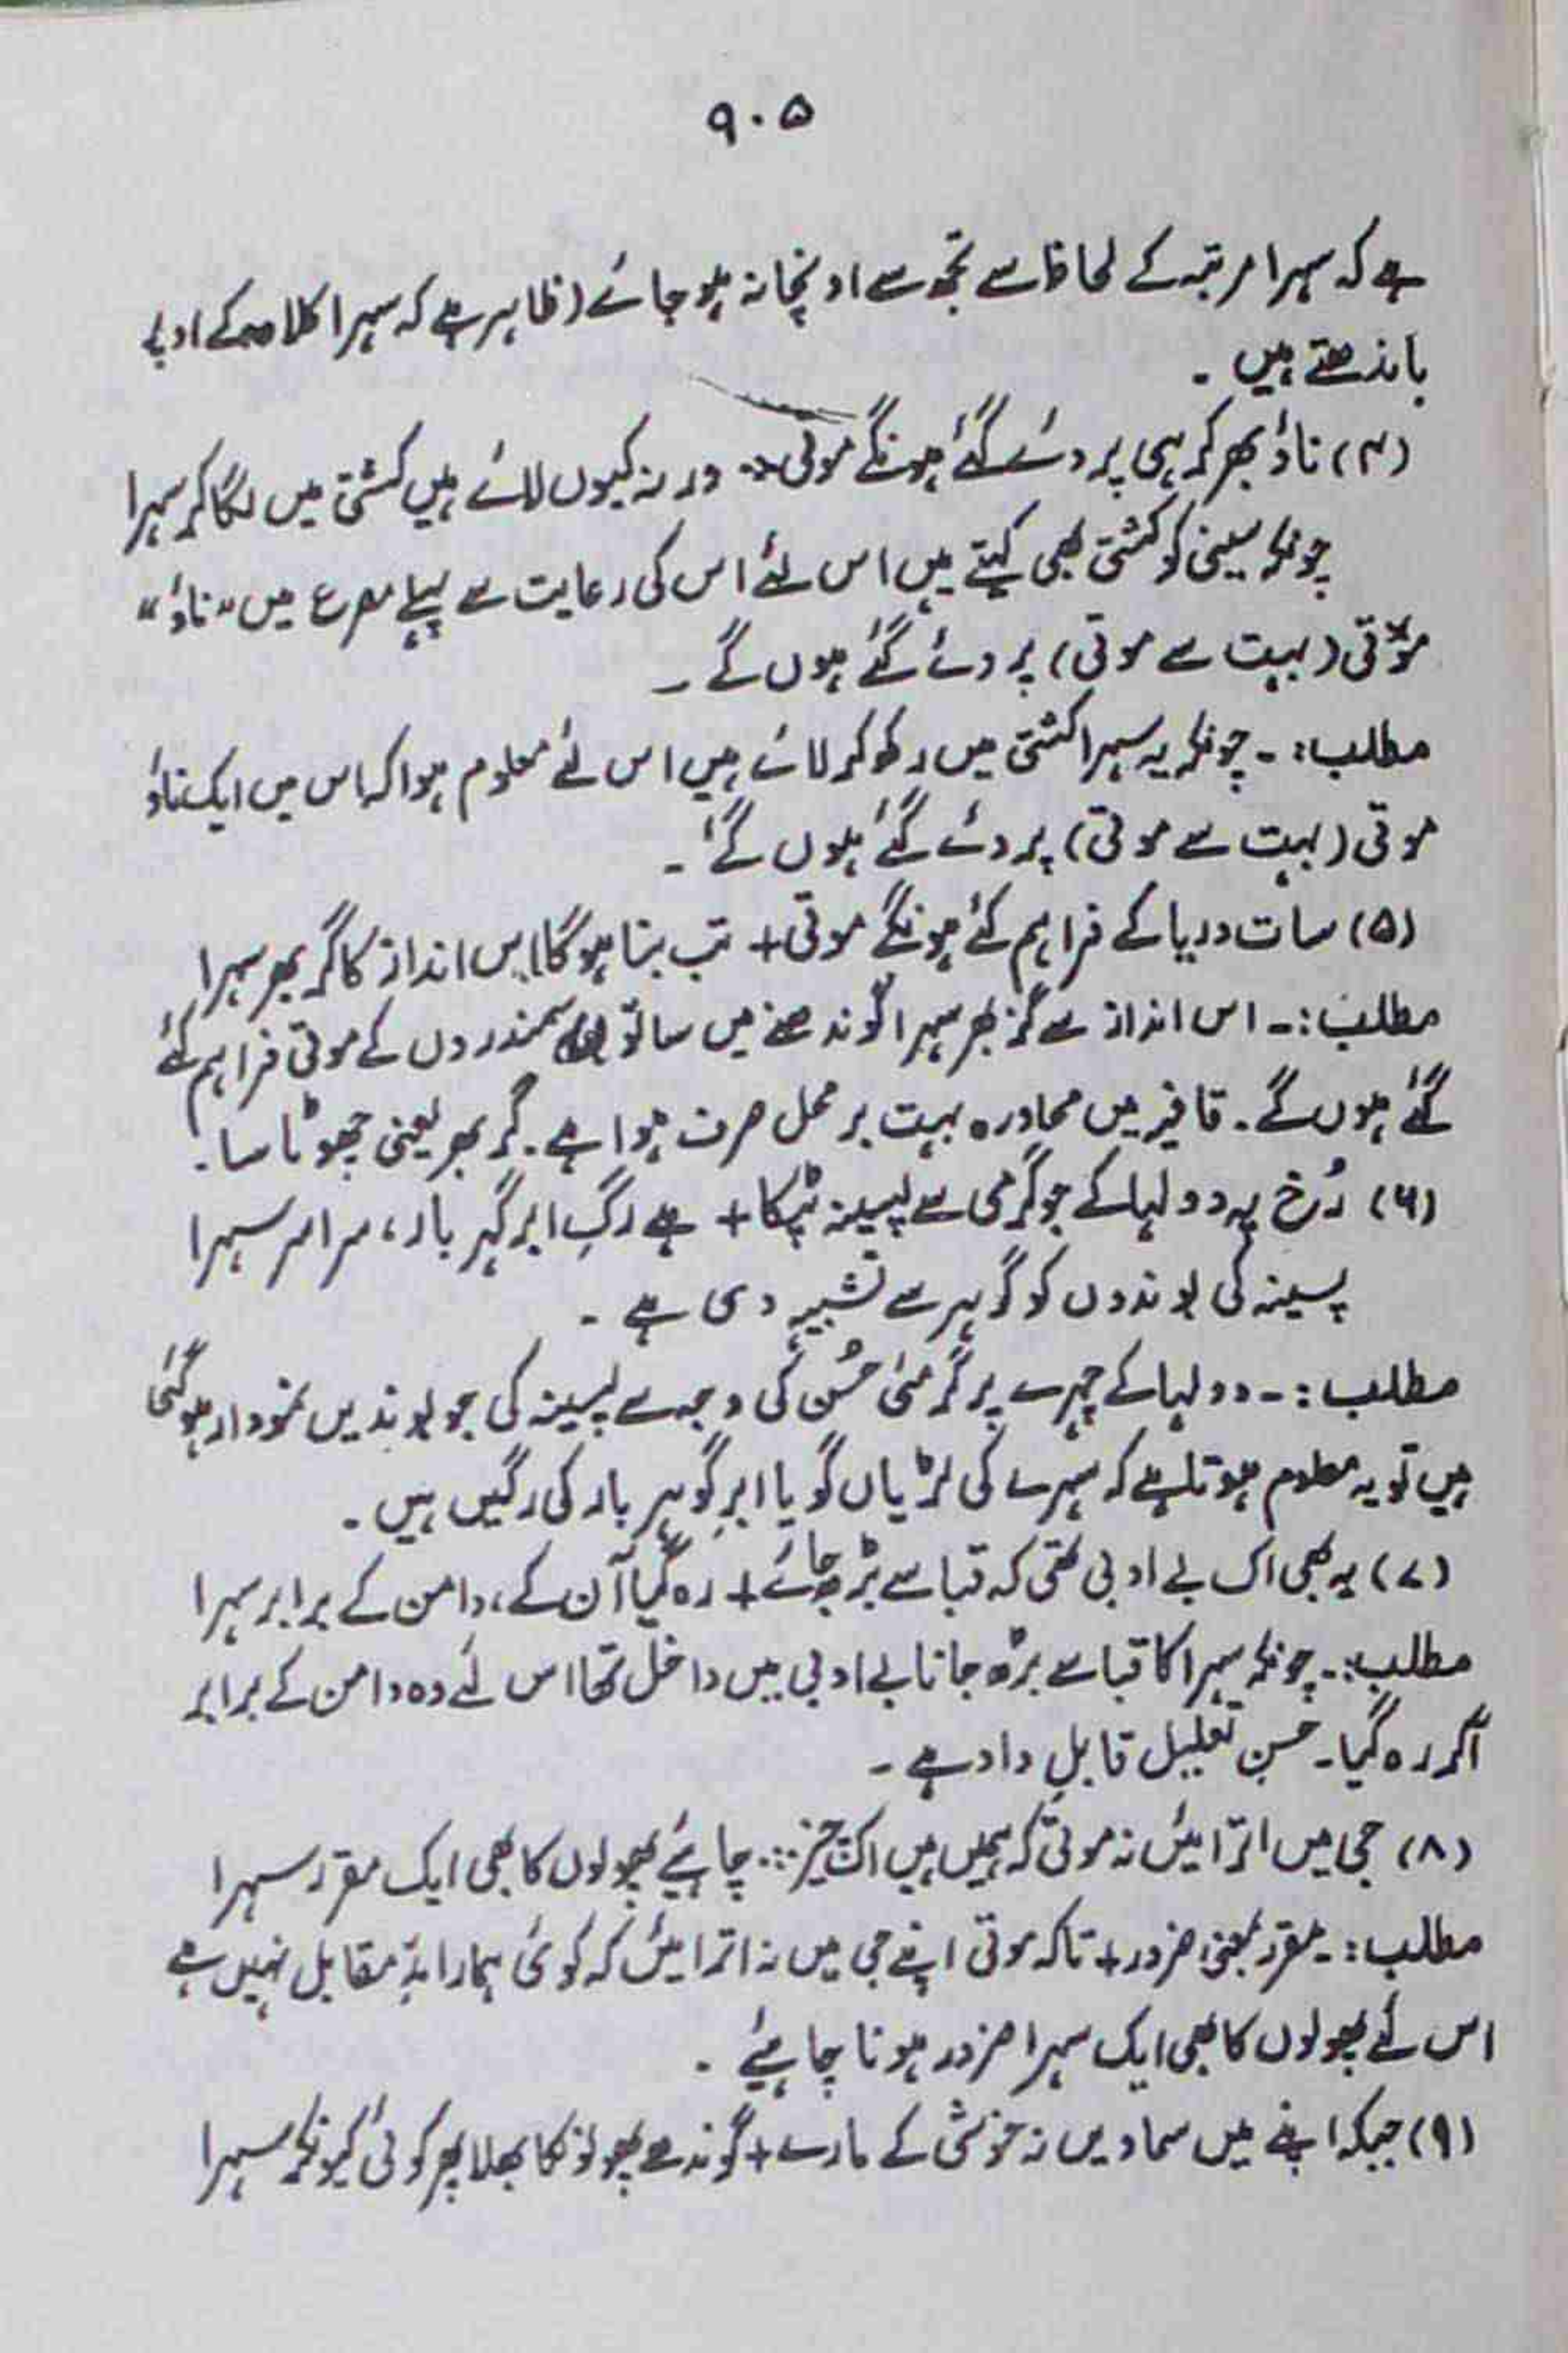 ۹۰۵
ہے کہ سہرا مرتبہ کے لحاظ سے تجھ سے اونچا نہ ہو جائے (ظاہر ہے کہ سہرا کلاہ کے اوپر
باندھتے ہیں ۔
(۴) ناؤ بھر کر ہی پروئے گئے ہونگے موتی ورنہ کیوں لائے ہیں کشتی میں لگا کر سہرا
چونکہ سینی کو کشتی بھی کہتے ہیں اس لئے اس کی رعایت سے پہلے مصرع میں "ناؤ"
موتی (بہت سے موتی) پروئے گئے ہوں گے ۔
مطلب:۔ چونکہ یہ سہرا کشتی میں رکھ کر لائے ہیں اس لئے معلوم ہوا کہ اس میں ایک ناؤ
موتی (بہت سے موتی) پروئے گئے ہوں گے ۔
(۵) سات دریا کے فراہم کئے ہونگے موتی + تب بنا ہوگا اس انداز کا گز بھر سہرا
مطلب:۔ اس انداز سے گز بھر سہرا گوندھنے میں ساتوں سمندروں کے موتی فراہم کئے
گئے ہوں گے۔ قافیہ میں محاورہ بہت بر محل صرف ہوا ہے۔ گز بھر یعنی چھوٹا سا۔
(۶) رُخ پہ دولہا کے جو گرمی سے پسینہ ٹپکا + ہے رگِ ابر گہر بار، سراسر سہرا
پسینہ کی بوندوں کو گوہر سے تشبیہ دی ہے ۔
مطلب:۔ دولہا کے چہرے پر گرمئی حُسن کی وجہ سے پسینہ کی جو بوندیں نمودار ہوگئی
ہیں تو یہ معلوم ہوتا ہے کہ سہرے کی لڑیاں گویا ابرِ گوہر بار کی رگیں ہیں ۔
(۷) یہ بھی اک بے ادبی تھی کہ قبا سے بڑھ جائے + رہ گیا آن کے، دامن کے برابر سہرا
مطلب:۔ چونکہ سہرا کا قبا سے بڑھ جانا بے ادبی میں داخل تھا اس لئے وہ دامن کے برابر
آکر رہ گیا۔ حسنِ تعلیل قابلِ داد ہے ۔
(۸) جی میں اترائیں نہ موتی کہ ہمیں ہیں اک چیز ... چاہئے پھولوں کا بھی ایک مقرر سہرا
مطلب:۔ مقرر بمعنی ضرور + تاکہ موتی اپنے جی میں نہ اترائیں کہ کوئی ہمارا مدِّ مقابل نہیں ہے
اس لئے پھولوں کا بھی ایک سہرا ضرور ہونا چاہئے ۔
(۹) جبکہ اپنے میں سماویں نہ خوشی کے مارے + گوندھے پھولونکا بھلا پھر کوئی کیونکر سہرا